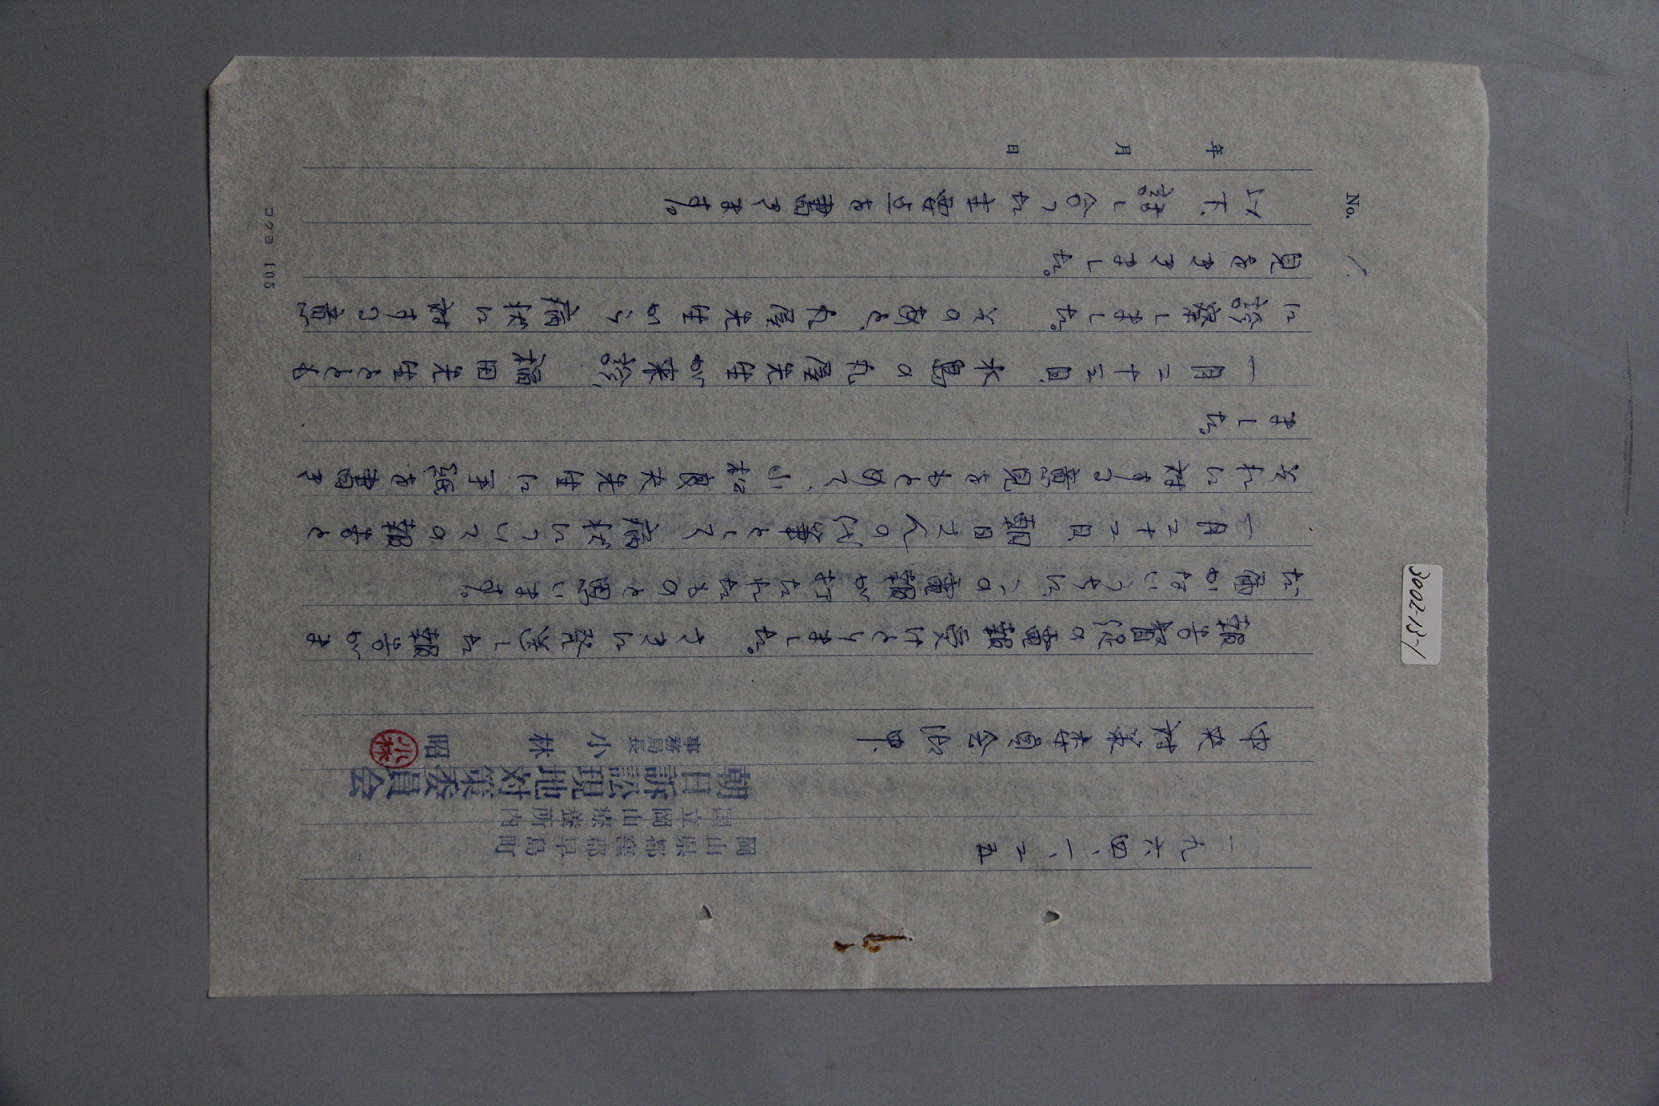 一九六四、一、二五
岡山県都窪郡早島町
国立岡山療養所内
朝日訴訟現地対策委員会
事務局長 小林 昭
小林
中央対策委員会 御中
報告督促の電報受けとりました。さきに発送した報告がま
だ届かないうちに、この電報が打たれたものと思います。
一月二十二日 朝日さんの代筆として 病状についての報告と
それに対する意見をもとめて、小松良夫先生に手紙を書き
ました。
一月二十三日、水島の丸屋先生が来診、福田先生ととも
に診察しました。そのあと、丸屋先生から病状に対する意
見をききました。
以下、話し合った主要点を書きます。
年 月 日
No. 1.
コクヨ 105
3002-13-1